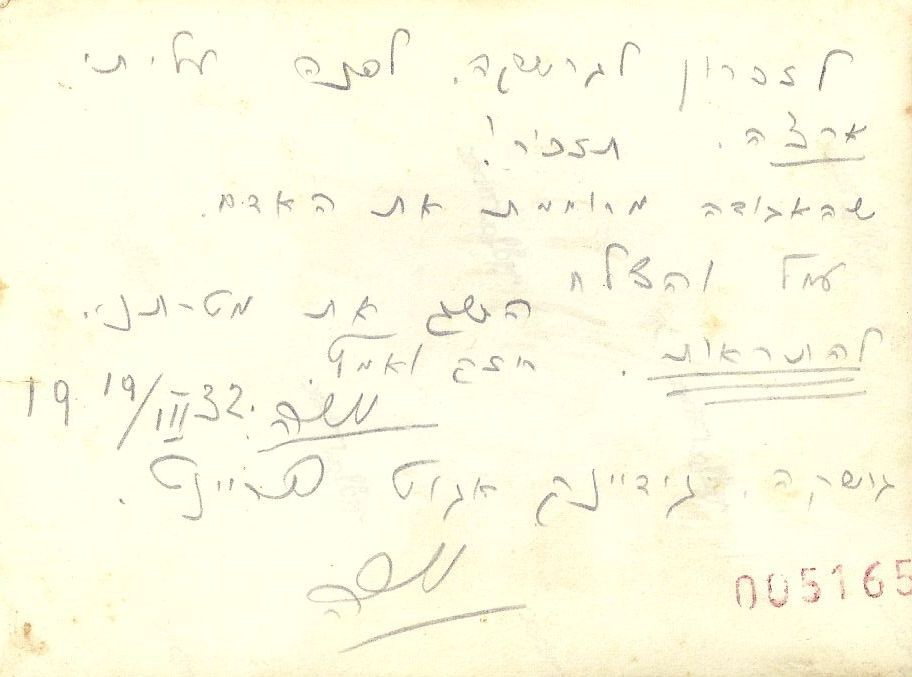 לזכרון לגרשקה. לפני עליתי
ארצה. תזכיר!
שהאגודה מרוממת את האדם.
עמל והצלח
השג את מטרתנו.
להתראות. חזק ואמץ.
19 19/III 32. משה
גרשקה. גידיינק אגוט פריינט.
משה
005165